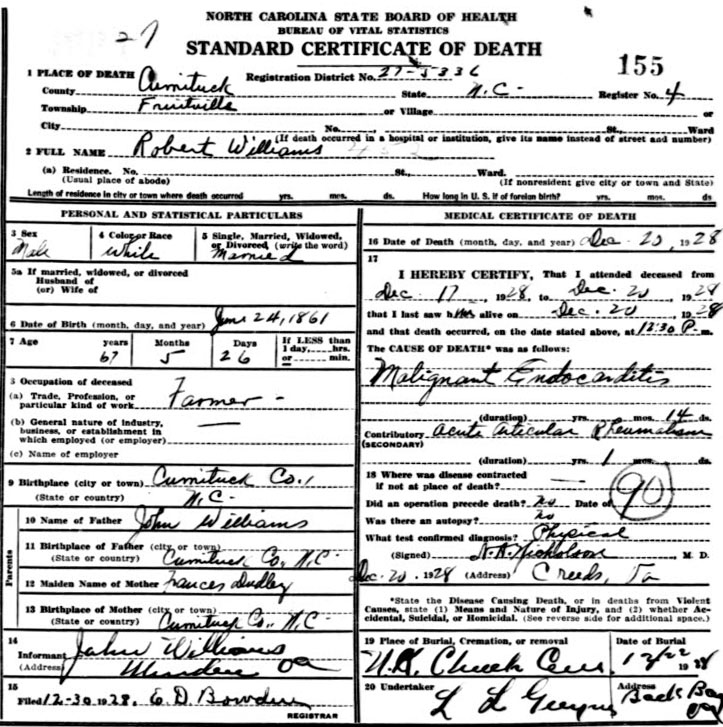 NORTH CAROLINA STATE BOARD OF HEALTH
BUREAU OF VITAL STATISTICS
27
STANDARD CERTIFICATE OF DEATH
155
1 PLACE OF DEATH
Registration District No. 27-5336
County Currituck State N.C- Register No. 4
Township Fruitville or Village or
City No. St., Ward
(If death occurred in a hospital or institution, give its name instead of street and number)
2 FULL NAME Robert Williams
(a) Residence. No. St., Ward.
(Usual place of abode) (If nonresident give city or town and State)
Length of residence in city or town where death occurred yrs. mos. ds. How long in U. S. if of foreign birth? yrs. mos. ds.
PERSONAL AND STATISTICAL PARTICULARS
3 Sex 4 Color or Race 5 Single, Married, Widowed, or Divorced, (write the word)
Male White Married
5a If married, widowed, or divorced
Husband of
(or) Wife of
6 Date of Birth (month, day, and year) June 24, 1861
7 Age years Months Days If LESS than
1 day, hrs.
or min.
67 5 26
8 Occupation of deceased
(a) Trade, Profession, or
particular kind of work Farmer -
(b) General nature of industry,
business, or establishment in
which employed (or employer)
(c) Name of employer
9 Birthplace (city or town) Currituck Co.,
(State or country) N.C-
Parents
10 Name of Father John Williams
11 Birthplace of Father (city or town)
(State or country) Currituck Co, N.C-
12 Maiden Name of Mother Frances Dudley
13 Birthplace of Mother (city or town)
(State or country) Currituck Co., N.C-
14
Informant John Williams
(Address) Va
15
Filed 12-30 1928, E. D. Bowden
REGISTRAR
MEDICAL CERTIFICATE OF DEATH
16 Date of Death (month, day, and year) Dec. 20, 1928
17
I HEREBY CERTIFY, That I attended deceased from
Dec. 17, 1928, to Dec. 20 1928
that I last saw him alive on Dec. 20, 1928
and that death occurred, on the date stated above, at 12:30 P. m.
The CAUSE OF DEATH* was as follows:
Malignant Endocarditis
(duration) yrs. mos. 14 ds.
Contributory Acute Articular Rheumatism
(SECONDARY)
(duration) yrs. 1 mos. ds.
18 Where was disease contracted
if not at place of death?
90
Did an operation precede death? no Date of
Was there an autopsy? no
What test confirmed diagnosis? Physical
(Signed) Nicholson M. D.
Dec. 20, 1928 (Address) Creeds, Va
*State the Disease Causing Death, or in deaths from Violent
Causes, state (1) Means and Nature of Injury, and (2) whether Ac-
cidental, Suicidal, or Homicidal. (See reverse side for additional space.)
19 Place of Burial, Cremation, or removal Date of Burial
12/22 1928
20 Undertaker Address
L L Back Bay
Va